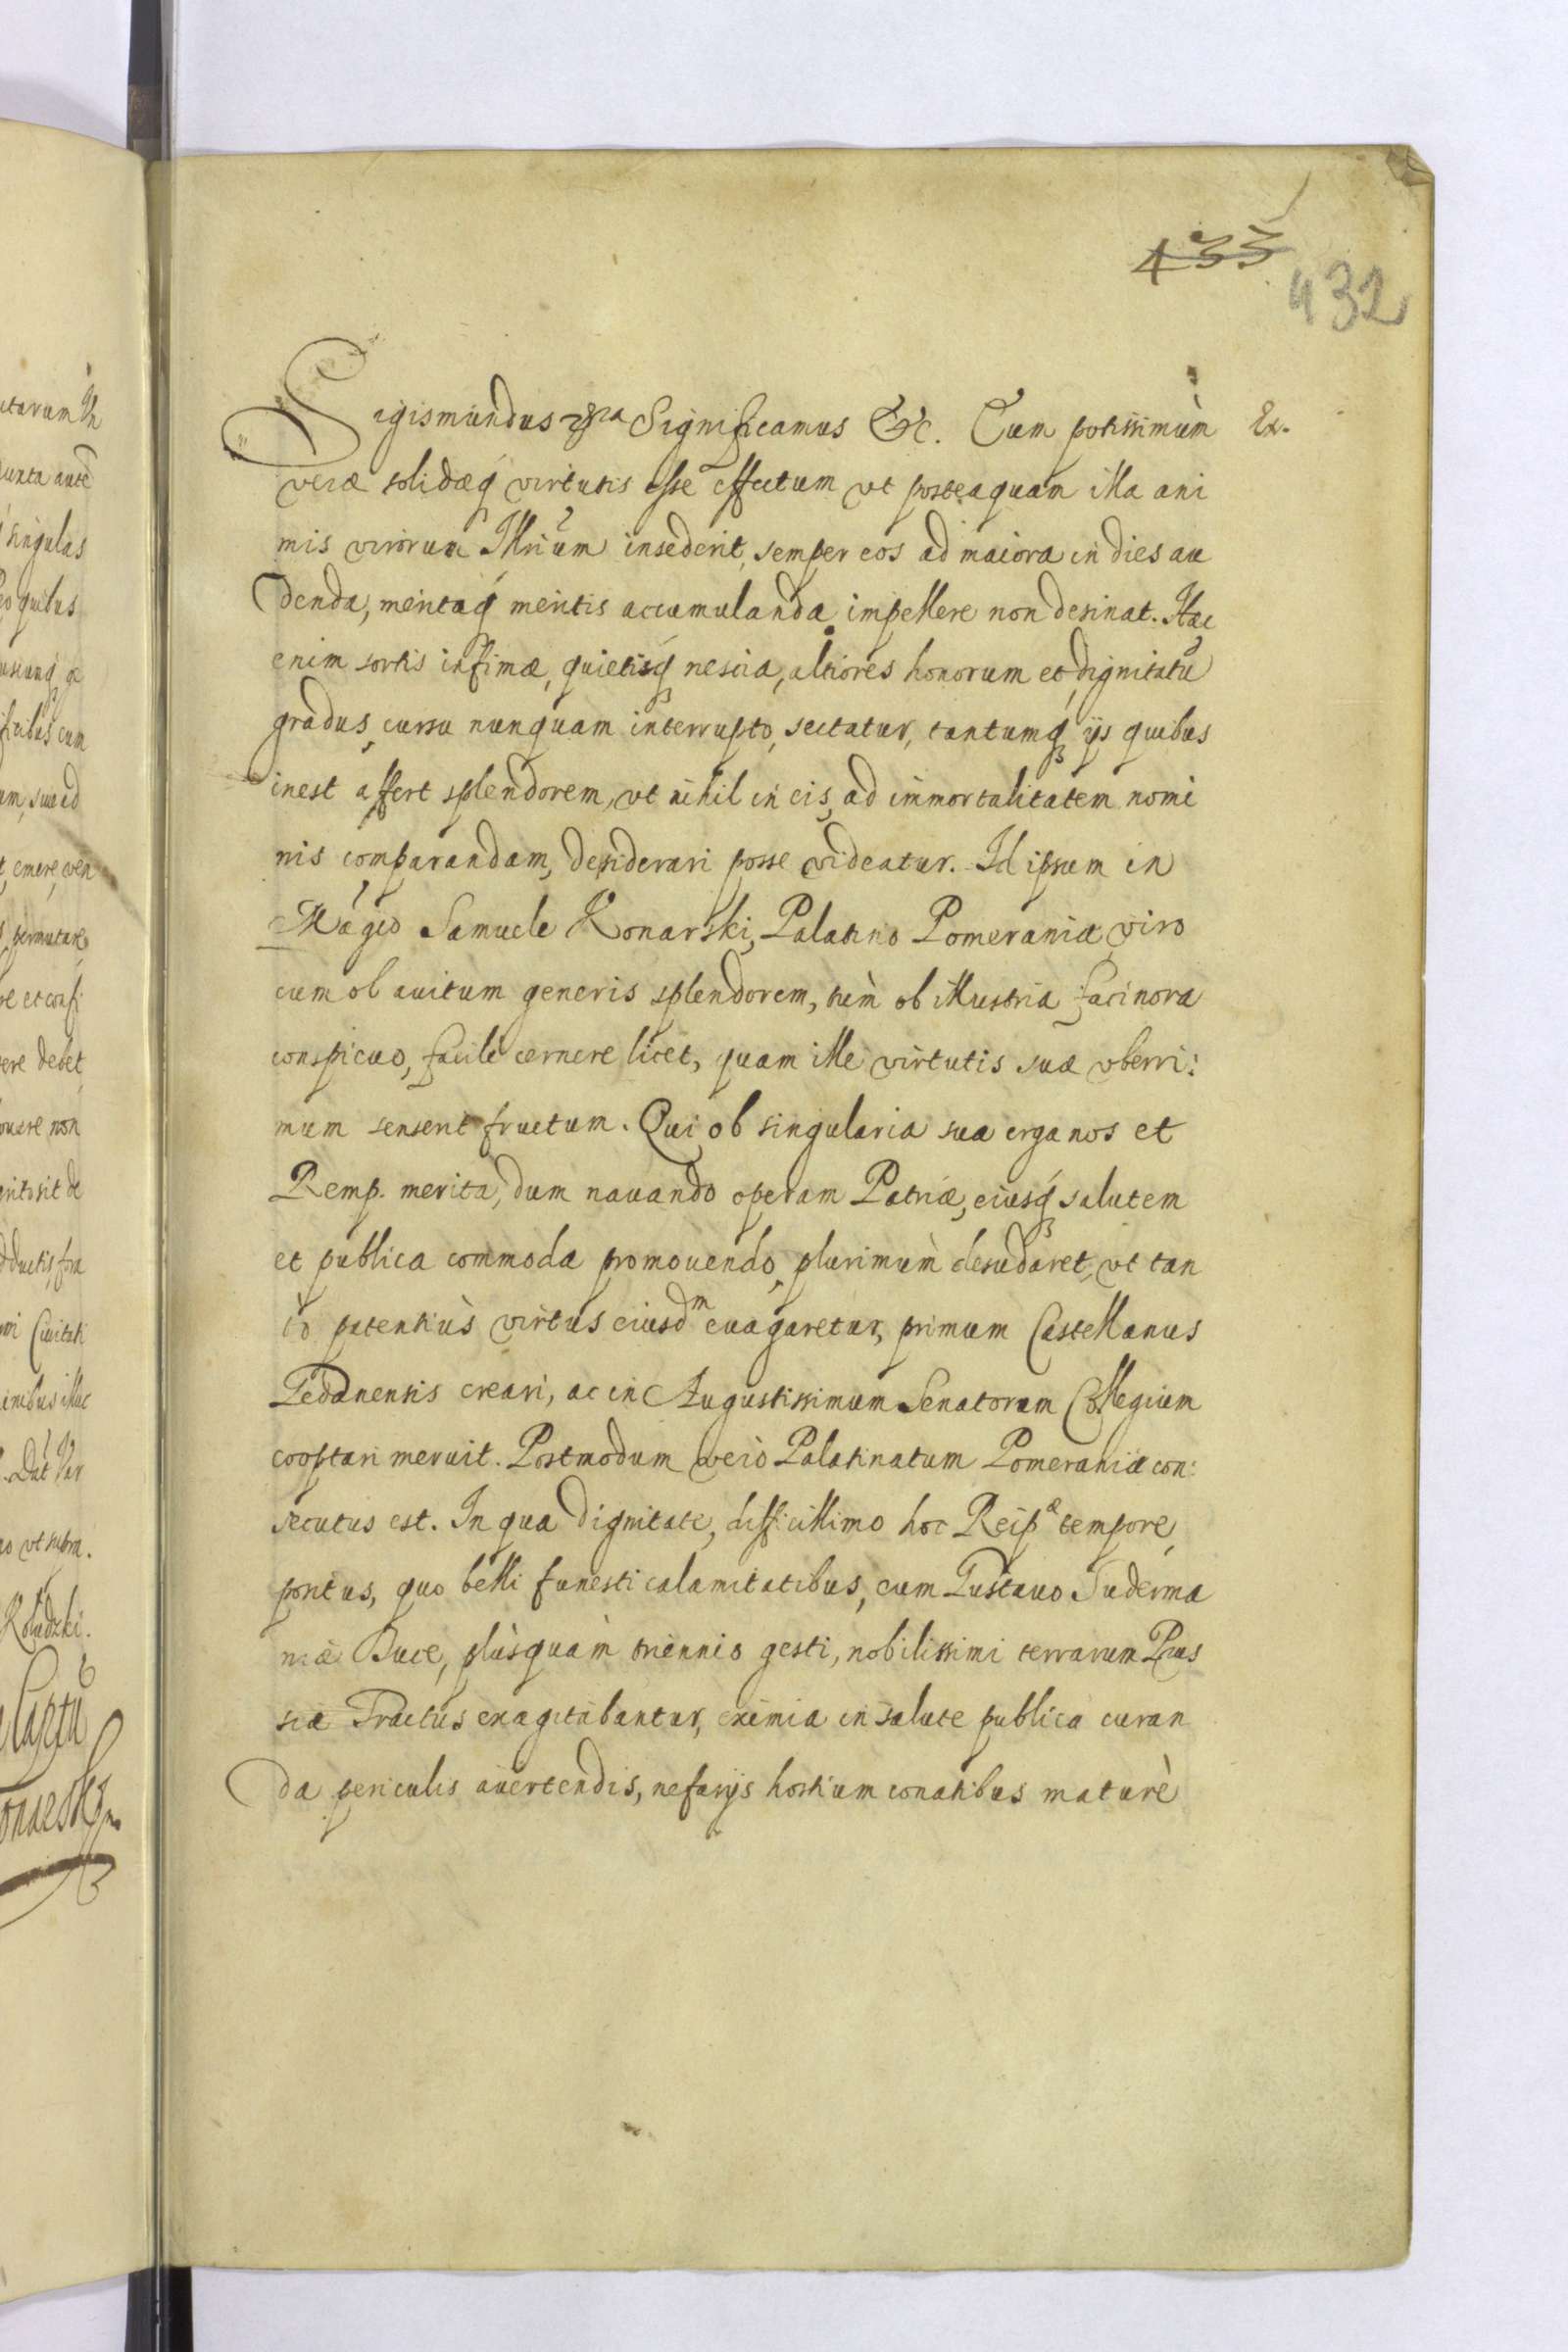 433
432
Sigismundus 3us Significamus &c. Cum potissimùm Ex.
veræ solidæq́ virtutis esse effectum vt posteaquam illa ani
mis virorum Illrium insederit, semper eos ad maiora in dies au
denda, meritaq́ meritis accumulanda impellere non desinat. Hæc
enim sortis infimæ, quietisq́ nescia, altiores honorum et dignitatũ
gradus, cursu nunquam interrupto, sectatur, tantumq́ ijs quibus
inest affert splendorem, vt nihil in eis, ad immortalitatem nomi
nis comparandam, desiderari posse videatur. Id ipsum in
Magco Samuele Konarski, Palatino Pomeraniæ, viro
cum ob auitum generis splendorem, tùm ob illustria facinora
conspicuo, facilè cernere licet, quam ille virtutis suæ vberri:
mum senserit fructum. Qui ob singularia sua erga nos et
Remp. merita, dum nauando operam Patriæ, eiusq́ salutem
et publica commoda promouendo, plurimùm desudaret, vt tan
tò patentiùs virtus eiusdm euagaretur, primum Castellanus
Gedanensis creari, ac in Augustissimum Senatorum Collegium
cooptari meruit. Postmodum verò Palatinatum Pomeraniæ con:
secutus est. In qua dignitate, difficillimo hoc Reipæ tempore,
positus, quo belli funesti calamitatibus, cum Gustauo Suderma
niæ Duce, plùsquàm triennio gesti, nobilissimi terrarum Prus
siæ Tractus exagitabantur, eximia in salute publica curan
da periculis auertendis, nefarijs hostium conatibus maturè